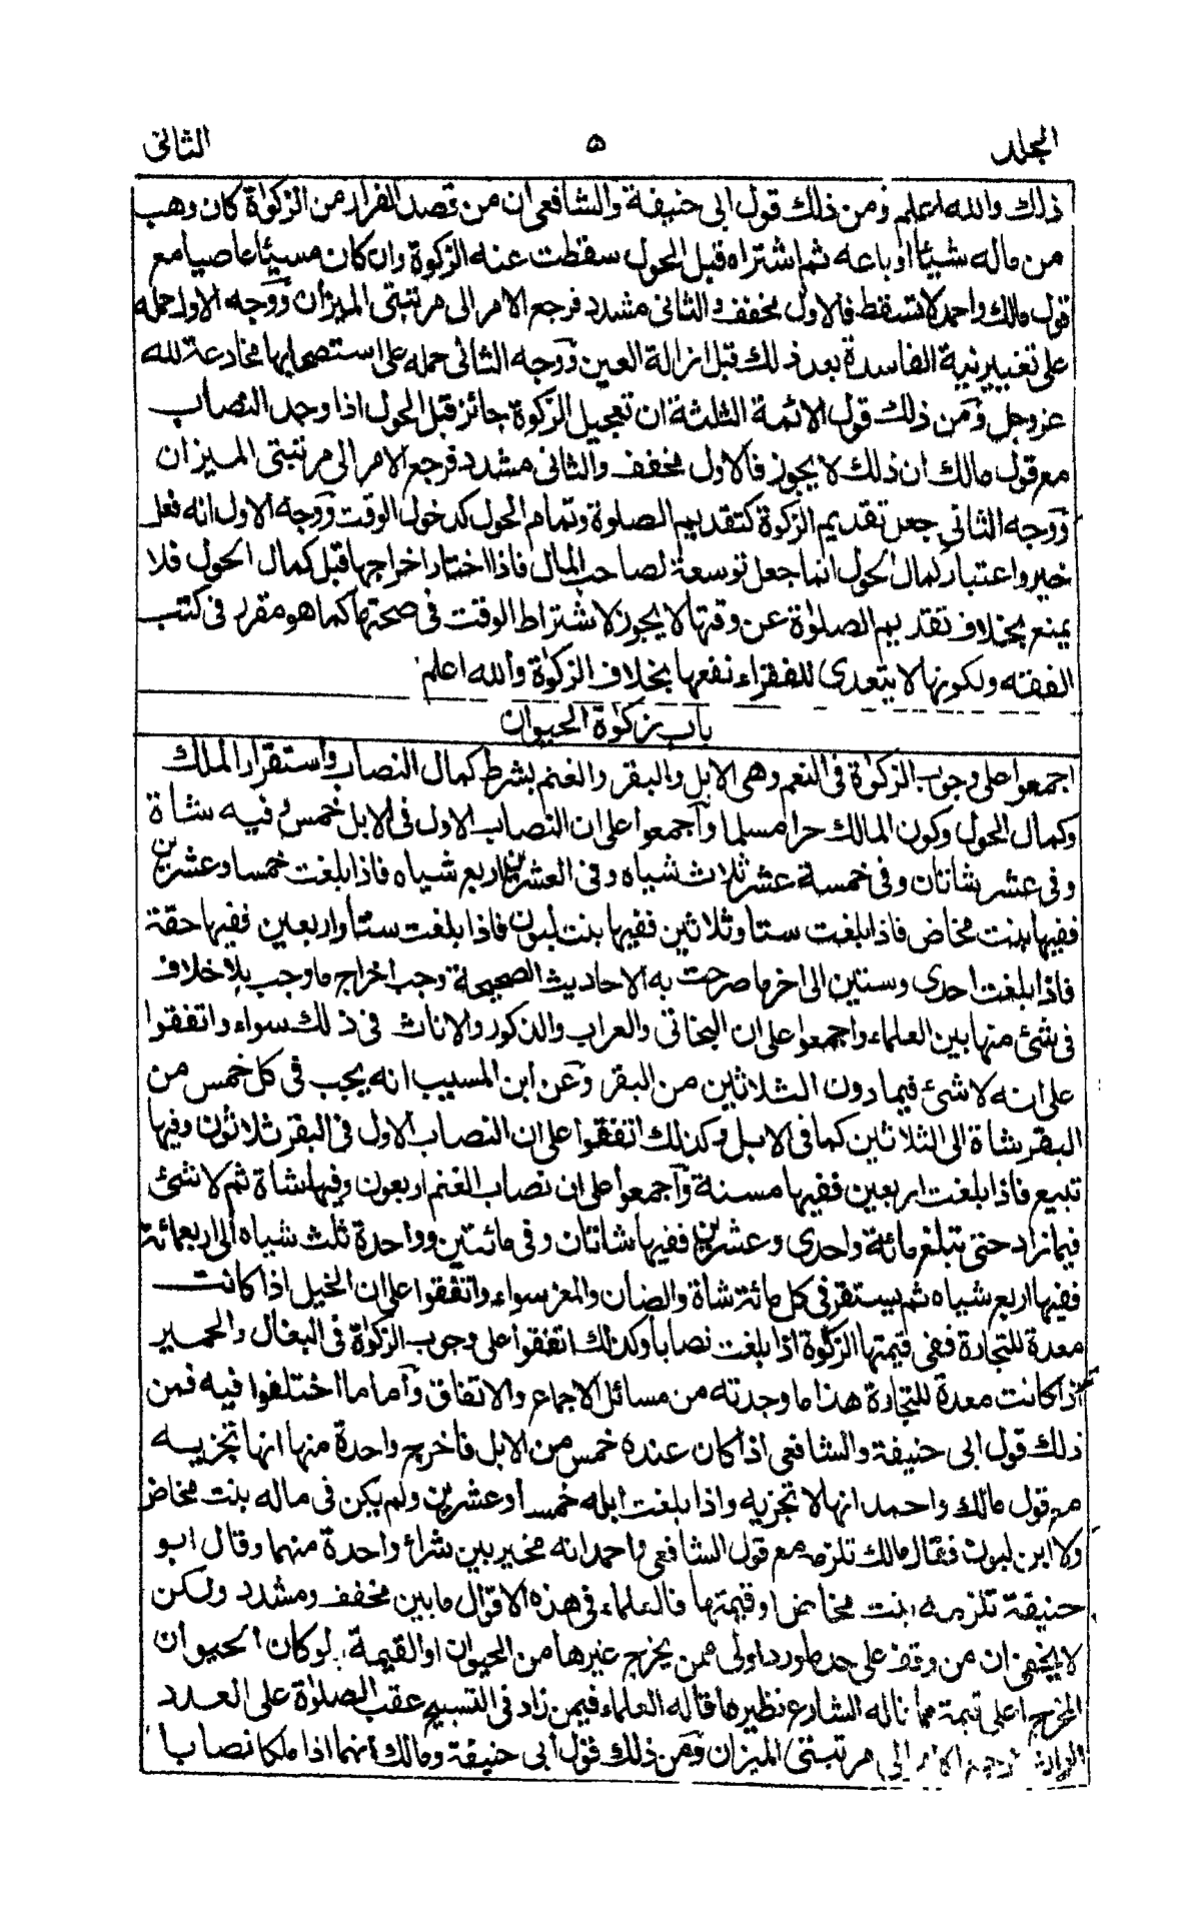 الجلد ۵ الثانى
ذلك والله اعلم ومن ذلك قول ابى حنيفة والشافعى ان من قصد الفرار من الزكوٰة كان وهب
من ماله شيئا او باعه ثم اشتراه قبل الحول سقطت عنه الزكوة وان كان مسيئا عاصيا مع
قول مالك واحمد لا تسقط فالاول مخفف والثانى مشدد فرجع الامر الى مرتبتى الميزان ووجه الاول حمله
على تغيير نية الفاسدة بعد ذلك قبل ازالة العين ووجه الثانى حمله على استصحابها مخادعة لله
عز وجل ومن ذلك قول الائمة الثلثة ان تعجيل الزكوة جائز قبل الحول اذا وجد النصاب
مع قول مالك ان ذلك لا يجوز فالاول مخفف والثانى مشدد فرجع الامر الى مرتبتى الميزان
ووجه الثانى جعل تقديم الزكوة كتقديم الصلوة وتمام الحول كدخول الوقت ووجه الاول انه فعل
خير واعتبار كمال الحول انما جعل توسعة لصاحب المال فاذا اختار اخراجها قبل كمال الحول فلا
يمنع بخلاف تقديم الصلوٰة عن وقتها لا يجوز لاشتراط الوقت فى صحتها كما هو مقرر فى كتب
الفقه ولكونها لا يتعدى للفقراء نفعها بخلاف الزكوٰة والله اعلم
باب زكوٰة الحيوان
اجمعوا على وجوب الزكوٰة فى النعم وهى الابل والبقر والغنم بشرط كمال النصاب واستقرار الملك
وكمال الحول وكون المالك حرا مسلما واجمعوا على ان النصاب الاول فى الابل خمس وفيه شاة
وفى عشر شاتان وفى خمسة عشر ثلاث شياه وفى العشرين اربع شياه فاذا بلغت خمسا وعشرين
ففيها بنت مخاض فاذا بلغت ستا وثلاثين ففيها بنت لبون فاذا بلغت ستا واربعين ففيها حقة
فاذا بلغت احدى وستين الى اخر ما صرحت به الاحاديث الصحيحة وجب اخراج ما وجب بلا خلاف
فى شئ منها بين العلماء واجمعوا على ان البخاتى والعراب والذكور والاناث فى ذلك سواء واتفقوا
على انه لا شئ فيما دون الثلاثين من البقر وعن ابن المسيب انه يجب فى كل خمس من
البقر شاة الى الثلاثين كما فى الابل وكذلك اتفقوا على ان النصاب الاول فى البقر ثلاثون وفيها
تبيع فاذا بلغت اربعين ففيها مسنة واجمعوا على ان نصاب الغنم اربعون وفيها شاة ثم لا شئ
فيما زاد حتى تبلغ مائة واحدى وعشرين ففيها شاتان وفى مائتين وواحدة ثلث شياه الى اربعمائة
ففيها اربع شياه ثم يستقر فى كل مائة شاة والضان والمعز سواء واتفقوا على ان الخيل اذا كانت
معدة للتجارة ففى قيمتها الزكوة اذا بلغت نصابا وكذلك اتفقوا على وجوب الزكوٰة فى البغال والحمير
اذا كانت معدة للتجارة هذا ما وجدته من مسائل الاجماع والاتفاق واما ما اختلفوا فيه فمن
ذلك قول ابى حنيفة والشافعى اذا كان عنده خمس من الابل فاخرج واحدة منها انها تجزيه
مع قول مالك واحمد انها لا تجزيه واذا بلغت ابله خمسا وعشرين ولم يكن فى ماله بنت مخاض
ولا ابن لبون فقال مالك تلزمه مع قول الشافعى واحمد انه مخير بين شراء واحدة منهما وقال ابو
حنيفة تلزمه بنت مخاض او قيمتها فالعلماء فى هذه الاقوال ما بين مخفف ومشدد ولكن
لا يخفى ان من وقف على حد ما ورد اولى ممن يخرج غيرها من الحيوان او القيمة لو كان الحيوان
المخرج اعلى قيمة مما ناله الشارع نظير ما قاله العلماء فيمن زاد فى التسبيح عقب الصلوٰة على العدد
الى مرتبتى الميزان ومن ذلك قول ابى حنيفة ومالك انهما اذا ملكا نصابا